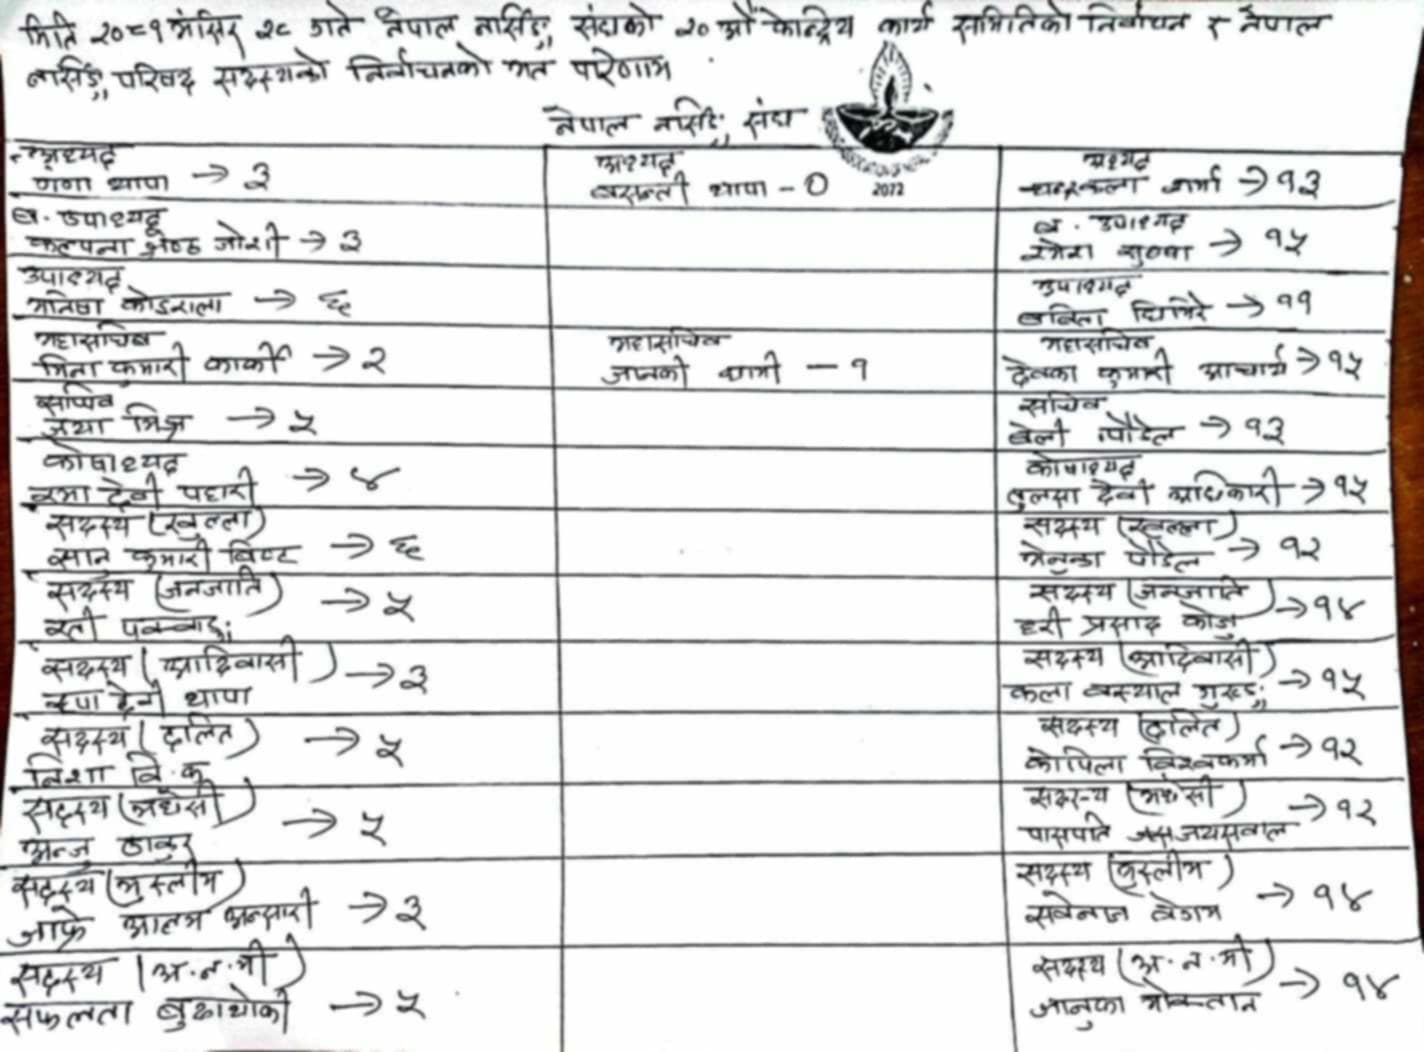 मिति २०८१ मंसिर २८ गते नेपाल नर्सिङ्ग संघको २० औं केन्द्रिय कार्य समितिको निर्वाचन र नेपाल
नर्सिङ्ग परिषद सदस्यको निर्वाचनको मत परिणाम
नेपाल नर्सिङ्ग संघ
2072
अध्यक्ष
थापा → ३
अध्यक्ष
बसन्ती थापा - 0
अध्यक्ष
चन्द्रकला शर्मा → १३
ब. उपाध्यक्ष
कल्पना श्रेष्ठ जोशी → ३
ब. उपाध्यक्ष
→ १५
उपाध्यक्ष
कोइराला → ६
उपाध्यक्ष
घिमिरे → ११
महासचिव
कुमारी कार्की → २
महासचिव
जानकी - १
महासचिव
देवका कुमारी आचार्य → १५
सचिव
→ ५
सचिव
पौडेल → १३
कोषाध्यक्ष
देवी पहारी → ४
कोषाध्यक्ष
तुलसा देवी अधिकारी → १५
सदस्य (खुल्ला)
सानु कुमारी बिष्ट → ६
सदस्य (खुल्ला)
मेनुका पौडेल → १२
सदस्य (जनजाति)
→ ५
सदस्य (जनजाति)
हरी प्रसाद → १४
सदस्य (आदिवासी)
थापा → ३
सदस्य (आदिवासी)
कला गुरुङ → १५
सदस्य (दलित)
निशा वि.क → ५
सदस्य (दलित)
कोपिला विश्वकर्मा → १२
सदस्य (मधेसी)
अन्जु ठाकुर → ५
सदस्य (मधेसी)
जयसवाल → १२
सदस्य (मुस्लीम)
आलम अन्सारी → ३
सदस्य (मुस्लीम)
बेगम → १४
सदस्य (अ.न.मी)
सफलता बुढाथोकी → ५
सदस्य (अ.न.मी)
जानुका मोक्तान → १४